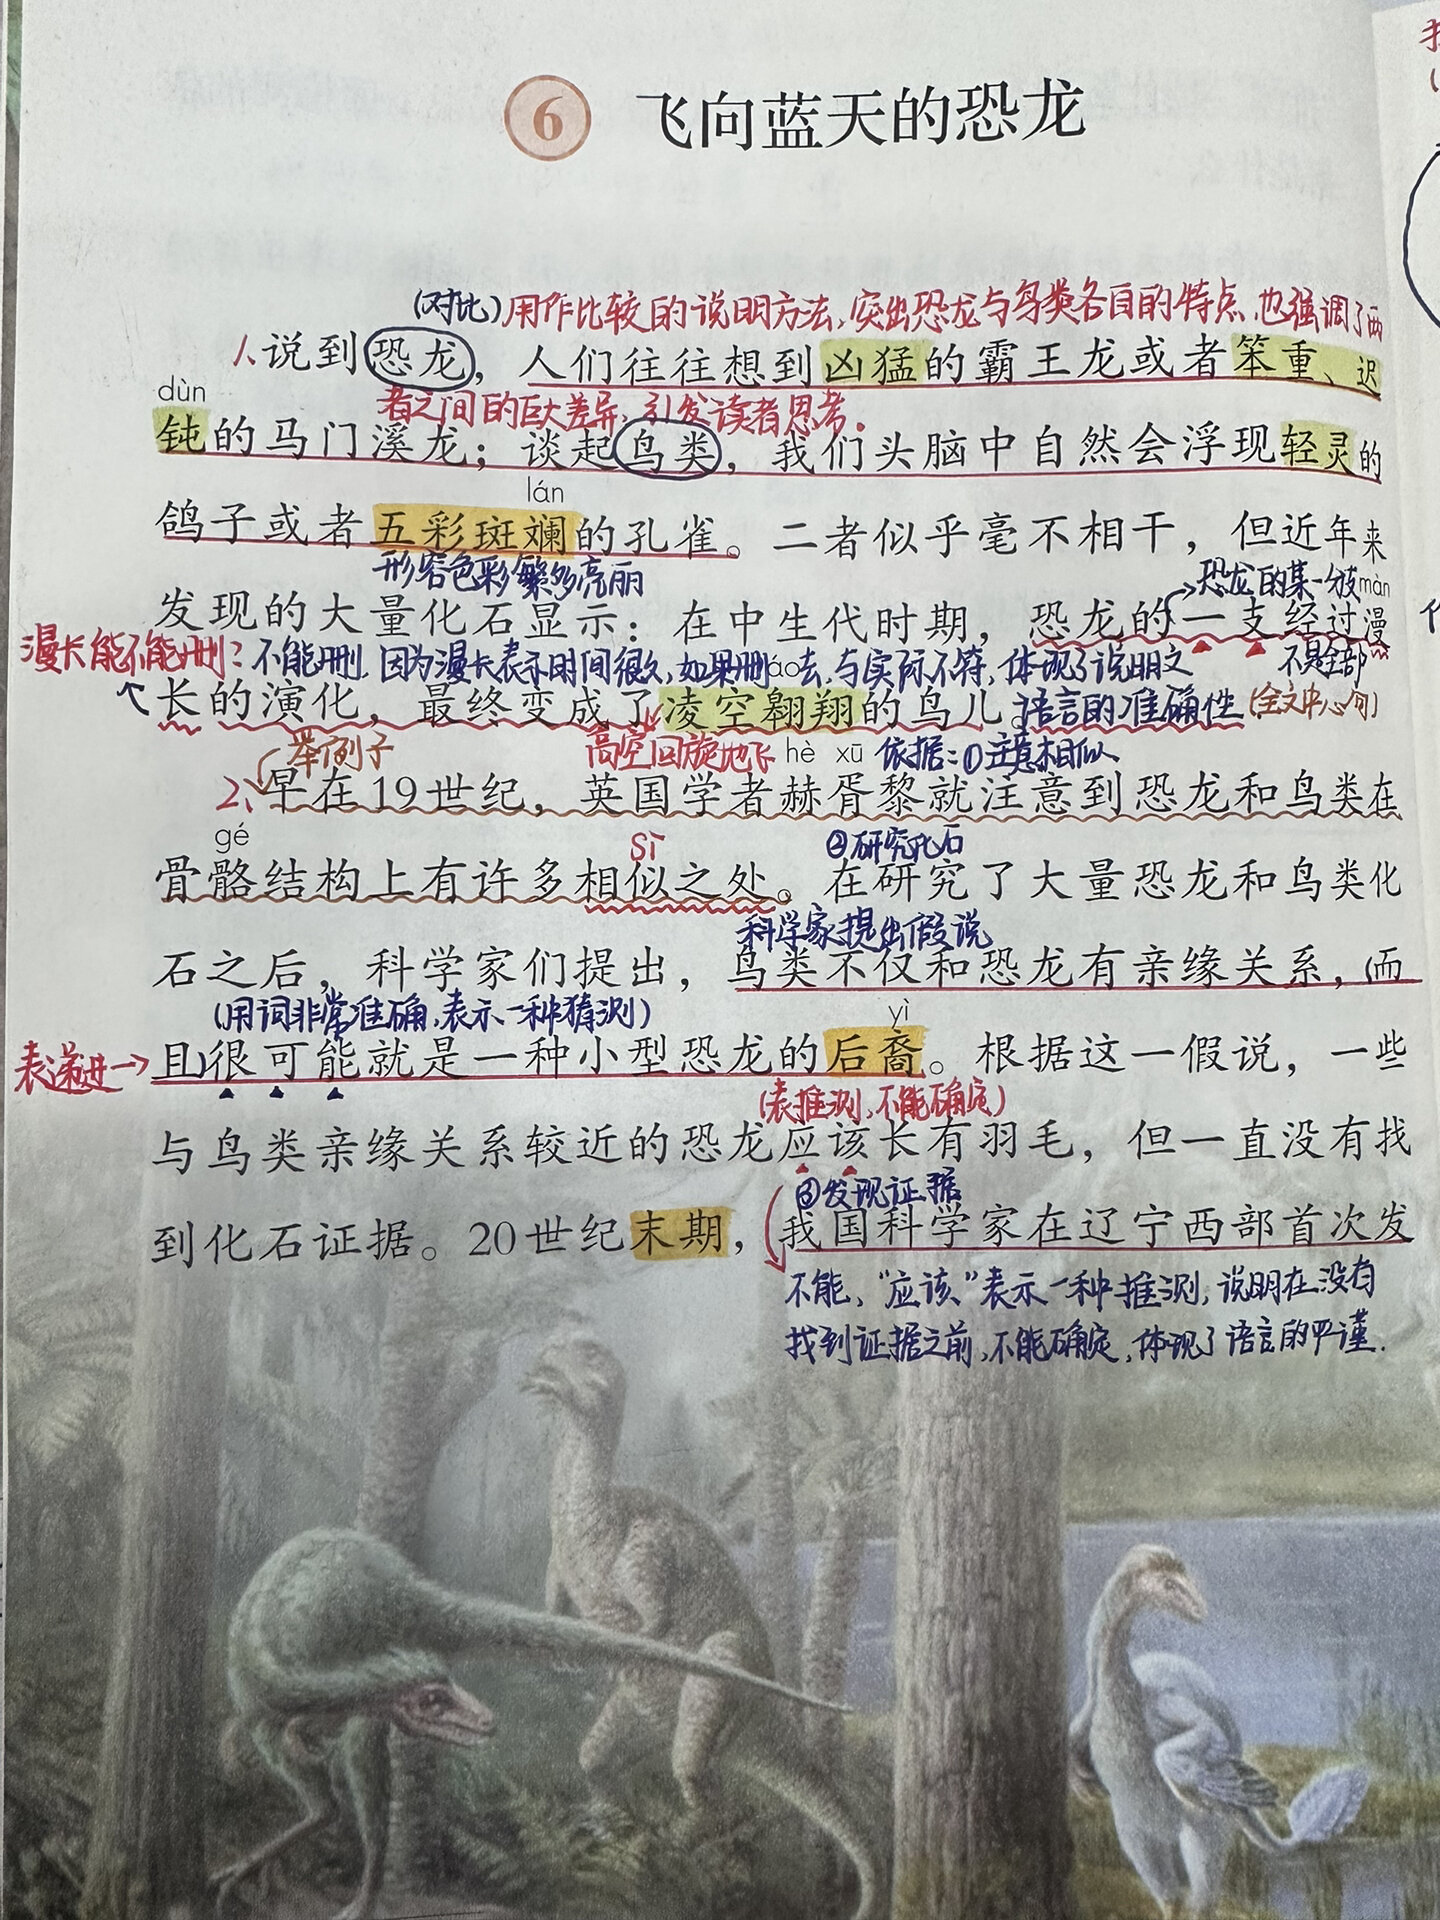 6 飞向蓝天的恐龙
(对比)用作比较的说明方法,突出恐龙与鸟类各自的特点,也强调了两
1、说到恐龙，人们往往想到凶猛的霸王龙或者笨重、迟
dùn
者之间的巨大差异,引发读者思考。
钝的马门溪龙；谈起鸟类，我们头脑中自然会浮现轻灵的
lán
鸽子或者五彩斑斓的孔雀。二者似乎毫不相干，但近年来
形容色彩繁多亮丽
恐龙的某一分支
màn
发现的大量化石显示：在中生代时期，恐龙的一支经过漫
漫长能不能删?不能删.因为漫长表示时间很久,如果删去,与实际不符,体现了说明文
áo
不是全部
长的演化，最终变成了凌空翱翔的鸟儿。
语言的准确性
(全文中心句)
举例子
高空回旋地飞
hè xū
依据:①注意相似
2、早在19世纪，英国学者赫胥黎就注意到恐龙和鸟类在
gé
sì
②研究化石
骨骼结构上有许多相似之处。在研究了大量恐龙和鸟类化
科学家提出假说
石之后，科学家们提出，鸟类不仅和恐龙有亲缘关系，(而
(用词非常准确,表示一种猜测)
yì
表递进→
且)很可能就是一种小型恐龙的后裔。根据这一假说，一些
(表推测,不能确定)
与鸟类亲缘关系较近的恐龙应该长有羽毛，但一直没有找
③发现证据
到化石证据。20世纪末期，我国科学家在辽宁西部首次发
不能,"应该"表示一种推测,说明在没有
找到证据之前,不能确定,体现了语言的严谨.